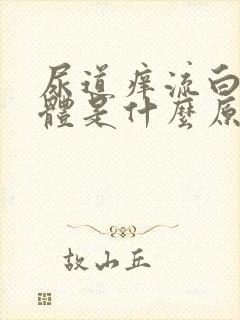 尿道痒流白
體是什麼原
故山丘